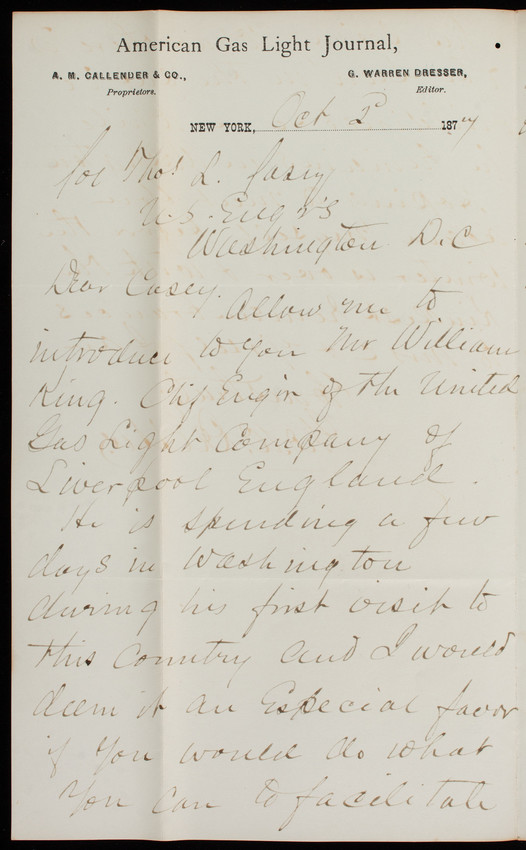 American Gas Light Journal,
A. M. CALLENDER & CO.,
Proprietors.
G. WARREN DRESSER,
Editor.
NEW YORK, Oct 2 1877
Col Thos L. Casey
U.S. Engr's
Washington D.C
Dear Casey.
Allow me to
introduce to you Mr William
King. Chf Engr of the United
Gas Light Company of
Liverpool England.
He is spending a few
days in Washington
during his first visit to
this country and I would
deem it an Especial favor
if you would do what
you can to facilitate